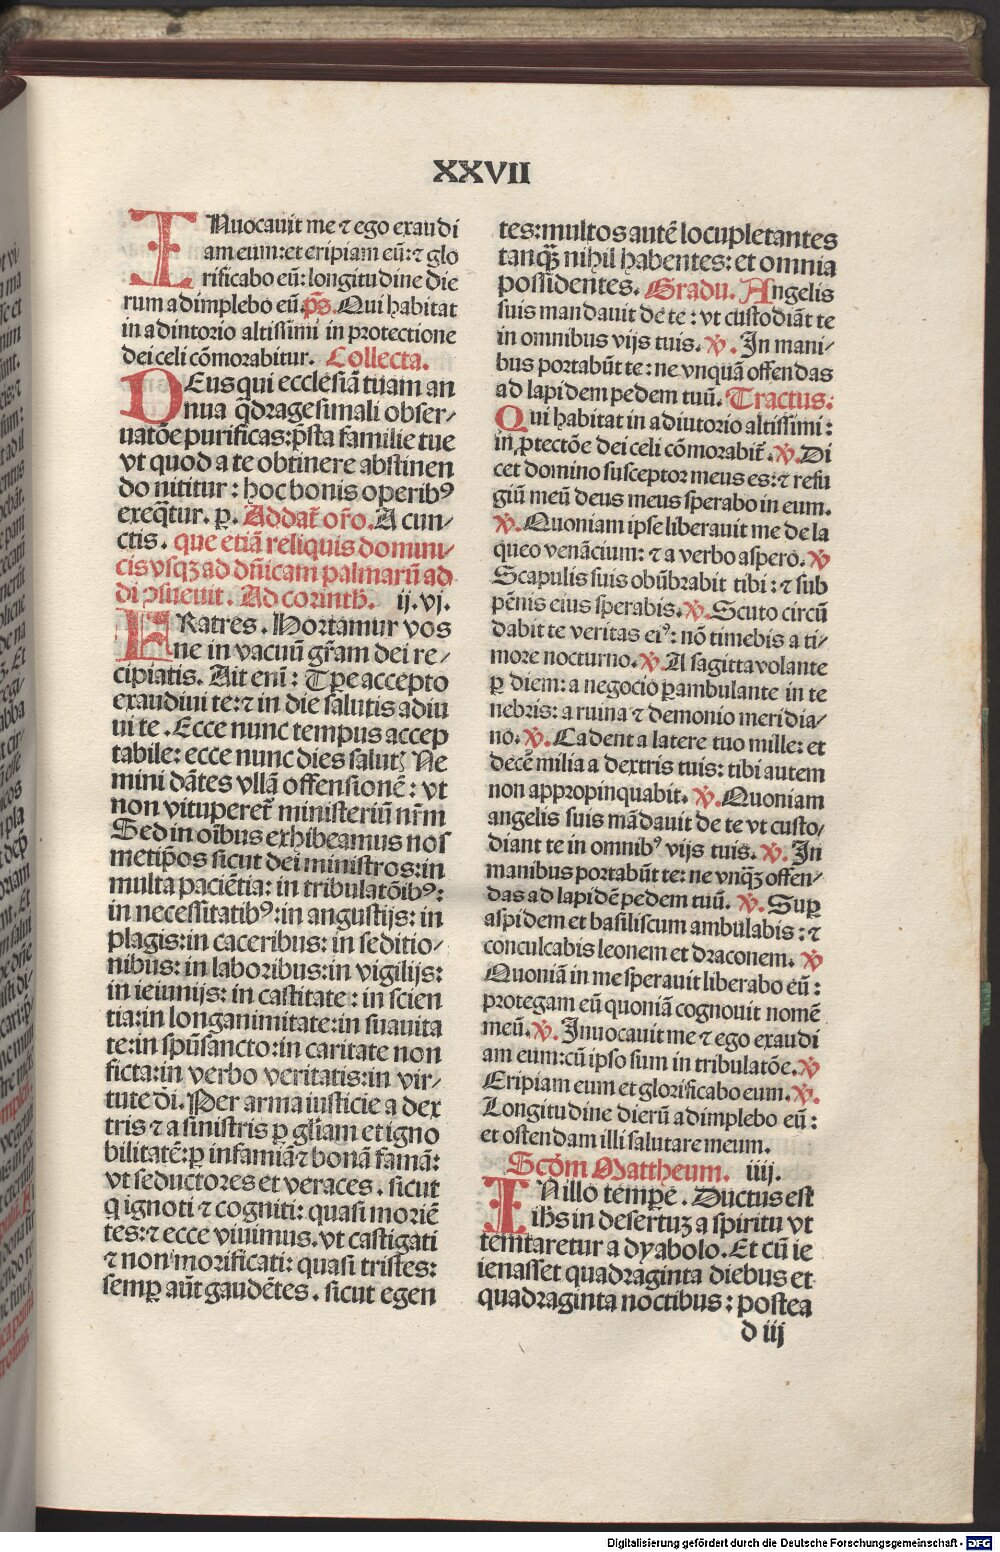 XXVII
INuocauit me ⁊ ego exaudi
am eum: et eripiam eū: ⁊ glo
rificabo eū: longitudine die
rum adimplebo eū. p̄s. Qui habitat
in adiutorio altissimi in protectione
dei celi cōmorabitur. Collecta.
DEus qui ecclesiā tuam an
nua q̄dragesimali obser⸗
uatōe purificas: p̄sta familie tue
vt quod a te obtinere abstinen
do nititur: hoc bonis operibꝰ
exeq̄tur. p. Addat̄ or̄o. A cun⸗
ctis. que etiā reliquis domini⸗
cis vsqꝫ ad dn̄icam palmarū ad
di ꝯsueuit. Ad corinth̄. ij. vj.
FRatres. Hortamur vos
ne in vacuū gr̄am dei re⸗
cipiatis. Ait eni̅: Tꝑe accepto
exaudiui te: ⁊ in die salutis adiu
ui te. Ecce nunc tempus accep
tabile: ecce nunc dies salutꝭ Ne
mini dātes vllā offensionē: vt
non vituperet̄ ministeriū nr̄m
Sed in oi̅bus exhibeamus nos
metip̄os sicut dei ministros: in
multa paciētia: in tribulatōibꝰ:
in necessitatibꝰ: in angustijs: in
plagis: in caceribus: in seditio⸗
nibus: in laboribus: in vigilijs:
in ieiunijs: in castitate: in scien
tia: in longanimitate: in suauita
te: in spū sancto: in caritate non
ficta: in verbo veritatis: in vir⸗
tute dī. Per arma iusticie a dex
tris ⁊ a sinistris ꝑ gliam et igno
bilitatē: ꝑ infamiā ⁊ bonā famā:
vt seductores et veraces. sicut
q ignoti ⁊ cogniti: quasi moriē
tes: ⁊ ecce viuimus. vt castigati
⁊ non morificati: quasi tristes:
semꝑ aūt gaudētes. sicut egen
tes: multos autē locupletantes
tanqꝫ̄ nihil habentes: et omnia
possidentes. Gradu. Angelis
suis mandauit de te: vt custodiāt te
in omnibus vijs tuis. ℣. In mani⸗
bus portabūt te: ne vnquā offendas
ad lapidem pedem tuū. Tractus.
Qui habitat in adiutorio altissimi:
in ꝓtectōe dei celi cōmorabit̄. ℣. Di
cet domino susceptor meus es: ⁊ refu
giū meū deus meus sperabo in eum.
℣. Quoniam ipse liberauit me de la
queo venācium: ⁊ a verbo aspero. ℣
Scapulis suis obūbrabit tibi: ⁊ sub
pēnis eius sperabis. ℣. Scuto circū
dabit te veritas eiꝰ: nō timebis a ti⸗
more nocturno. ℣. A sagitta volante
ꝑ diem: a negocio ꝑambulante in te
nebris: a ruina ⁊ demonio meridia⸗
no. ℣. Cadent a latere tuo mille: et
decē milia a dextris tuis: tibi autem
non appropinquabit. ℣. Quoniam
angelis suis mādauit de te vt custo⸗
diant te in omnibꝰ vijs tuis. ℣. In
manibus portabūt te: ne vnq̄ꝫ offen⸗
das ad lapidē pedem tuū. ℣. Suꝑ
aspidem et basiliscum ambulabis: ⁊
conculcabis leonem et draconem. ℣
Quoniā in me sperauit liberabo eū:
protegam eū quoniā cognouit nomē
meū. ℣. Inuocauit me ⁊ ego exaudi
am eum: cū ipso sum in tribulatōe. ℣
Eripiam eum et glorificabo eum. ℣.
Longitudine dierū adimplebo eū:
et ostendam illi salutare meum.
Scd̄m Mattheum. iiij.
INillo tempe̅. Ductus est
ih̄s in desertuꝫ a spiritu vt
temtaretur a dyabolo. Et cū ie
ienasset quadraginta diebus et
quadraginta noctibus: postea
d iij
Digitalisierung gefördert durch die Deutsche Forschungsgemeinschaft - DFG